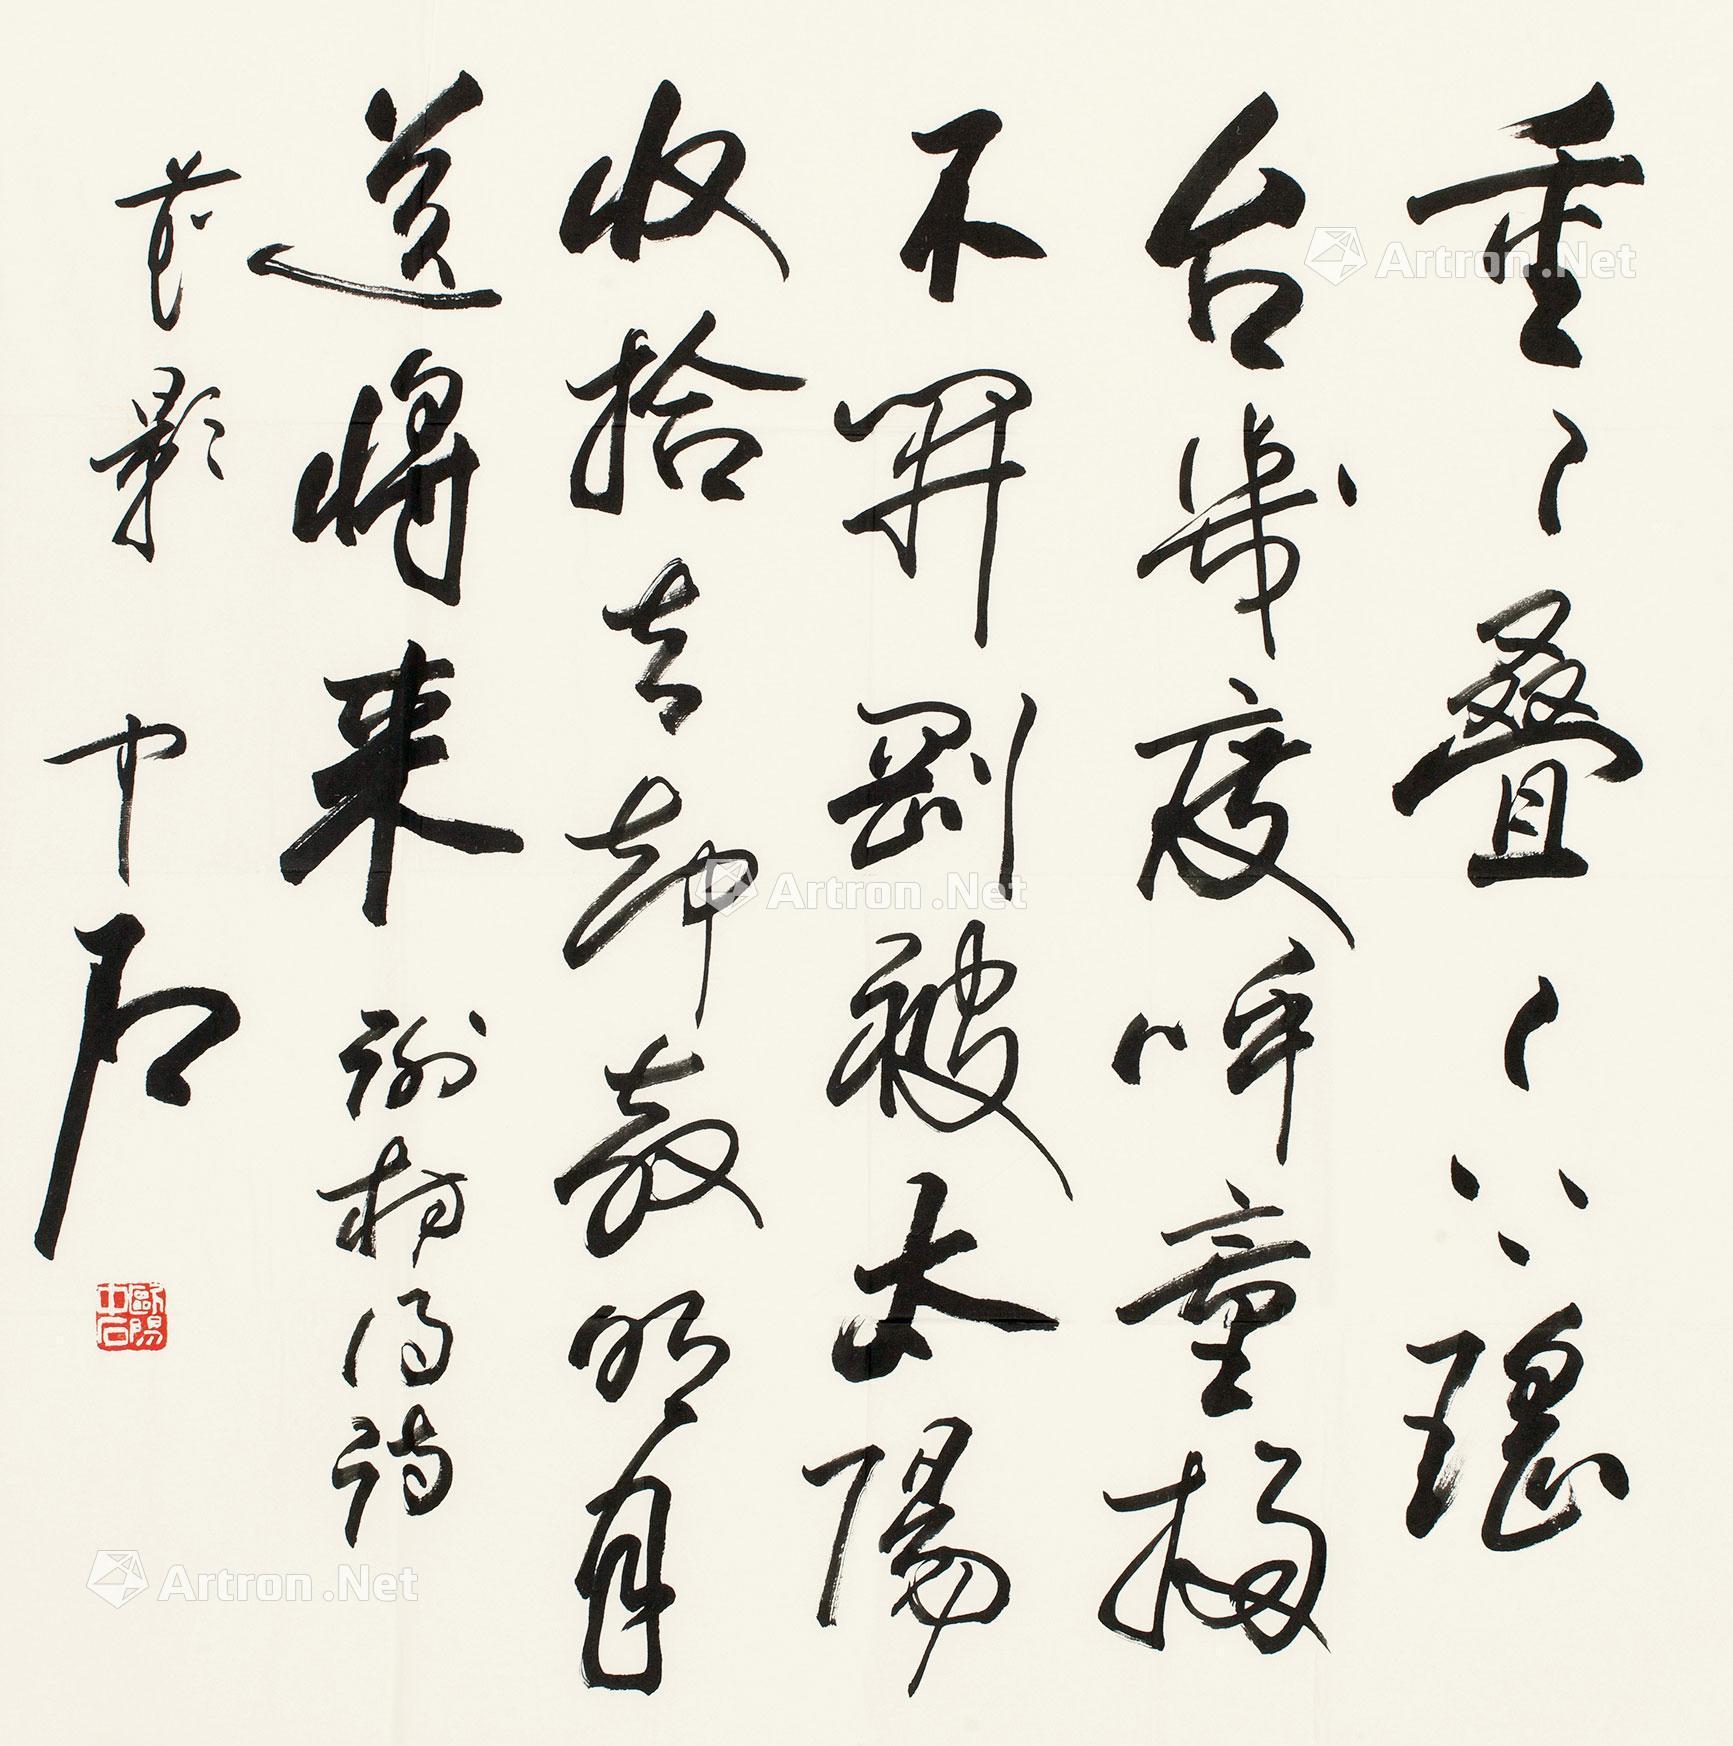 重重叠叠上瑶
台幾度呼童掃
不開剛被太陽
收拾去却教明月
送將來 謝枋得詩
花影 中石
歐陽中石
Artron.Net
Artron.Net
Artron.Net